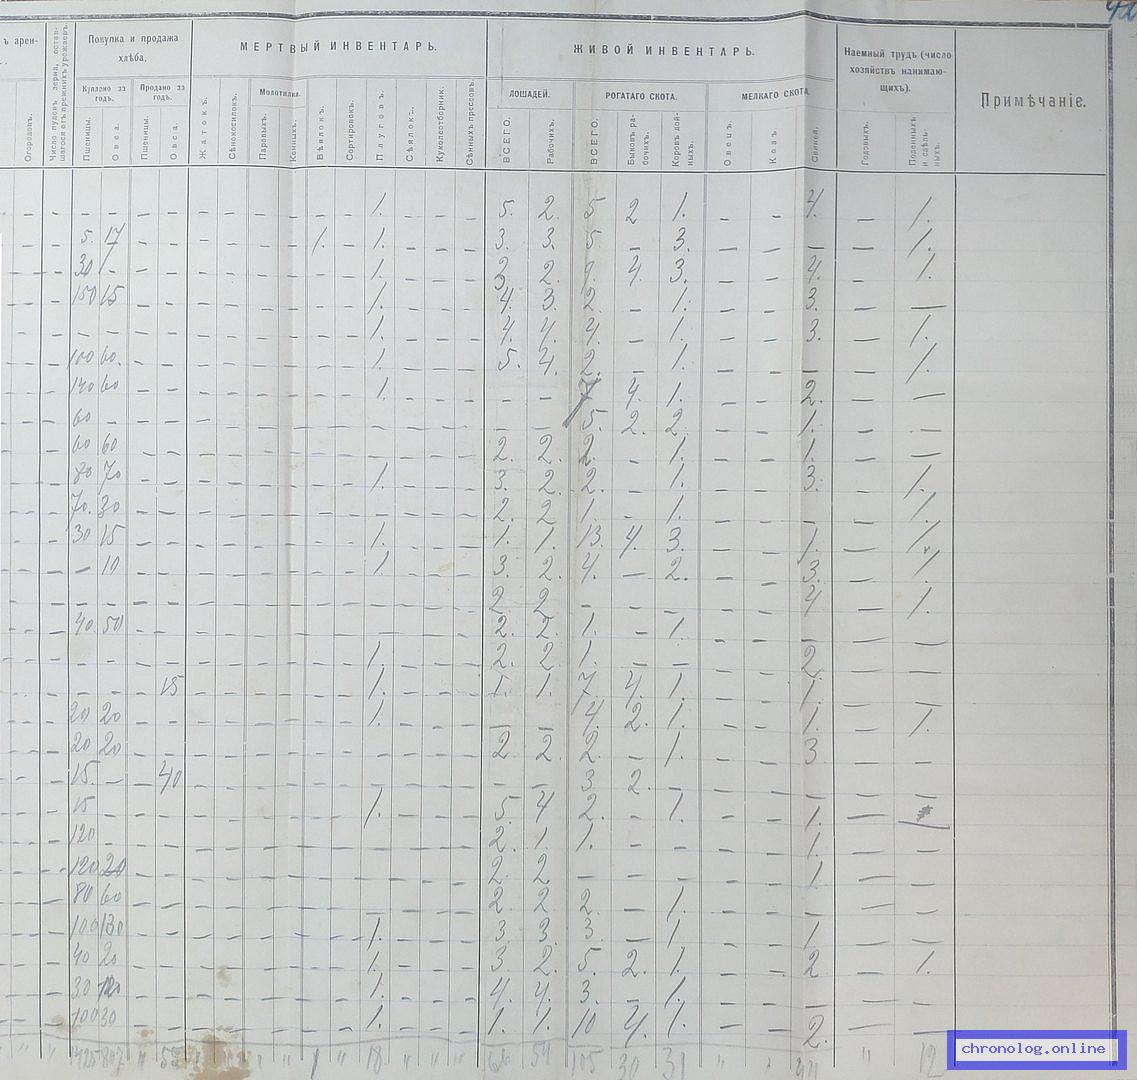 ъ арен-
Огородовъ.
Число пудовъ зерна, остав-
шагося отъ прежнихъ урожаевъ
Покупка и продажа
хлѣба.
Куплено за
годъ.
Продано за
годъ.
Пшеницы.
Овса.
Пшеницы.
Овса.
МЕРТВЫЙ ИНВЕНТАРЬ.
Жатокъ.
Сѣнокосилокъ.
Молотилка.
Паровыхъ.
Конныхъ.
Вѣялокъ.
Сортировокъ.
Плуговъ.
Сѣялокъ.
Куколеотборник.
Сѣнныхъ прессовъ.
ЖИВОЙ ИНВЕНТАРЬ.
ЛОШАДЕЙ.
ВСЕГО.
Рабочихъ.
РОГАТАГО СКОТА.
ВСЕГО.
Быковъ ра-
бочихъ.
Коровъ дой-
ныхъ.
МЕЛКАГО СКОТА.
Овецъ.
Козъ.
Свиней.
Наемный трудъ (число
хозяйствъ нанимаю-
щихъ).
Годовыхъ.
Поденныхъ
и сдѣль-
ныхъ.
Примѣчаніе.
- - - - - - - - - - - - - 1. - - - 5. 2. 5 2 1. - - 4. - 1.
- - 5. 17 - - - - - - 1. - 1. - - - 3. 3. 5. - 3. - - - - 1.
- - 30 - - - - - - - - - 1. - - - 2. 9. 4. 3. - - 4. - 1.
- - 150 15 - - - - - - - - 1. - - - 4. 3. 2. - 1. - - 3. - -
- - - - - - - - - - - - 1. - - - 4. 4. 4. - 1. - - 3. - 1.
- - 100 60. - - - - - - - - 1. - - - 5. 4. 2. - 1. - - - - 1.
- - 140 60 - - - - - - - - 1. - - - - - 7 4. 1. - - 2. - -
- - 60 - - - - - - - - - - - - - - - 5. 2. 2. - - 1. - -
- - 60 60 - - - - - - - - - - - - 2. 2. 2. - 1. - - 1. - -
- - 80 70 - - - - - - - - 1. - - - 3. 2. 2. - 1. - - 3. - 1.
- - 70. 30 - - - - - - - - - - - - 2. 2 1. - 1. - - - - 1.
- - 30 15 - - - - - - - - 1. - - - 1. 1. 13. 4. 3. - - 1. - 1.
- - - 10 - - - - - - - - 1. - - - 3. 2. 4. - 2. - - 3. - 1.
- - - - - - - - - - - - - - - - 2. 2 - - - - - 4 - 1.
- - 40. 50 - - - - - - - - - - - - 2. 2. 1. - 1. - - - - -
- - - - - - - - - - - - 1. - - - 2. 2. 1. - - - - 2. - -
- - - - - 15 - - - - - - 1. - - - 1. 1. 7. 4. 1. - - 1. - -
- - 20 20 - - - - - - - - 1. - - - - - 4. 2. 1. - - 1. - 1.
- - 20 20 - - - - - - - - - - - - 2 2. 2. - 1. - - 3. - -
- - 15. - - 40 - - - - - - - - - - - - 3 2. - - - - - -
- - 15 - - - - - - - - - 1. - - - 5. 4 2. - 1. - - 1. - -
- - 120 - - - - - - - - - - - - - 2. 1. 1. - - - - 1. - -
- - 120 20 - - - - - - - - - - - - 2. 2 - - - - - 1 - -
- - 80 60 - - - - - - - - - - - - 2. 2 2. - 1. - - - - -
- - 100 130 - - - - - - - - 1. - - - 3 3. 3. - 1 - - 1 - -
- - 40 20 - - - - - - - - 1. - - - 3. 2. 5. 2. 1. - - 2 - 1.
- - 30 - - - - - - - - 1. - - - 4. 4. 3. - 1. - - - - -
- - 100 30 - - - - - - - - 1. - - - 1. 1. 10 4. 1. - - 2. - -
" " " 1 " 18 " " " 105 30 31 " 12
chronolog.online